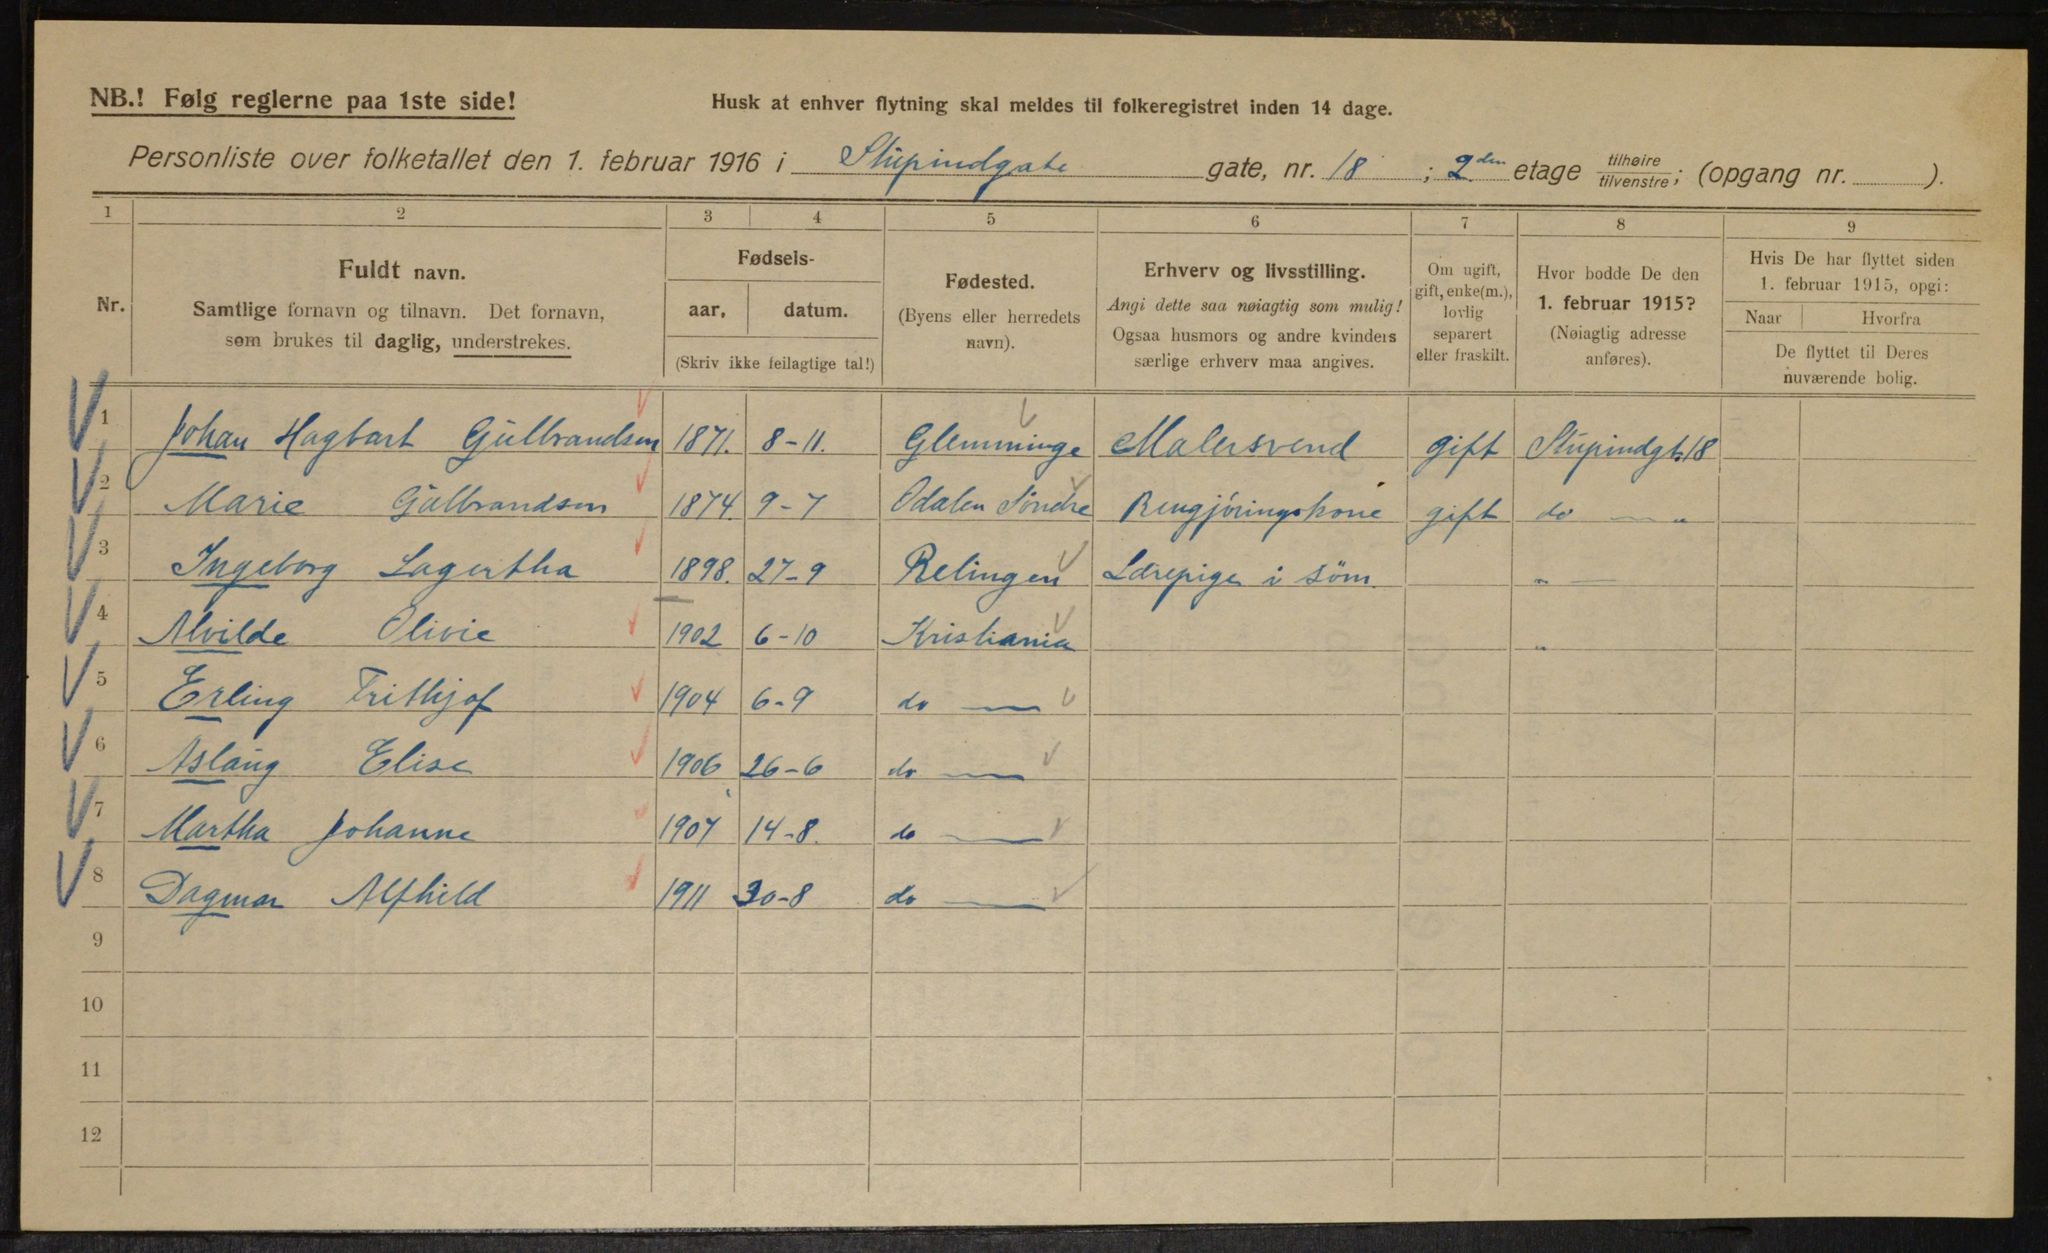 NB.! Følg reglerne paa 1ste side!
Husk at enhver flytning skal meldes til folkeregistret inden 14 dage.
Personliste over folketallet den 1. februar 1916 i Stupindgate gate, nr. 18 ; 2den etage tilhøire/tilvenstre; (opgang nr. ).
1 2 3 4 5 6 7 8 9
Nr.
Fuldt navn.
Samtlige fornavn og tilnavn. Det fornavn,
som brukes til daglig, understrekes.
Fødsels-
aar, datum.
(Skriv ikke feilagtige tal!)
Fødested.
(Byens eller herredets
navn).
Erhverv og livsstilling.
Angi dette saa nøiagtig som mulig!
Ogsaa husmors og andre kvinders
særlige erhverv maa angives.
Om ugift,
gift, enke(m.),
lovlig
separert
eller fraskilt.
Hvor bodde De den
1. februar 1915?
(Nøiagtig adresse
anføres).
Hvis De har flyttet siden
1. februar 1915, opgi:
Naar Hvorfra
De flyttet til Deres
nuværende bolig.
1 Johan Hagbart Gulbrandsen 1871. 8-11. Glemminge Malersvend gift Stupindgt. 18
2 Marie Gulbrandsen 1874. 9-7 Odalen Søndre Rengjøringskone gift do — „
3 Ingeborg Lagertha 1898. 27-9 Relingen Lærepige i söm. „ —
4 Alvilde Olivie 1902 6-10 Kristiania „
5 Erling Frithjof 1904 6-9 do —
6 Aslaug Elise 1906 26-6 do —
7 Martha Johanne 1907 14-8. do —
8 Dagmar Alfhild 1911 30-8 do —
9
10
11
12